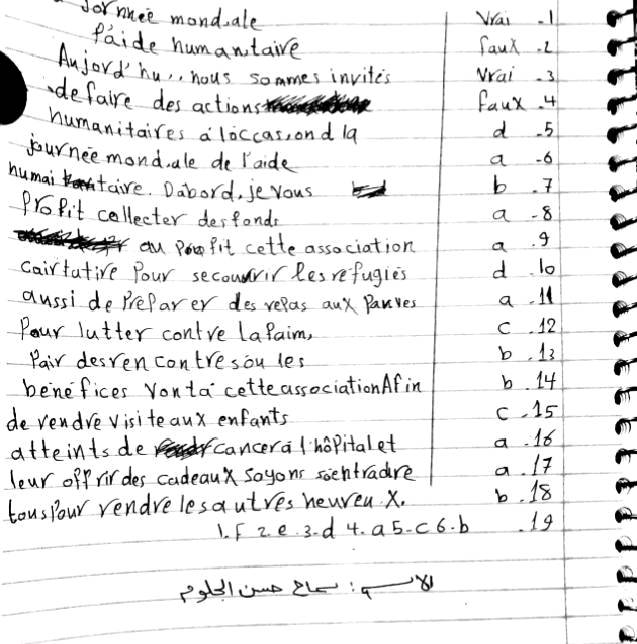 Jornneé mondiale
l'aide humanitaire
Aujord'hu,, nous sommes invités
defaire des actions
humanitaires a loccasion d la
journeé mondiale de l'aide
humaitaire. Dabord, je vous
Profit collecter des fonds
au Profit cette association
cairtative Pour secourir les refugiés
aussi de Preparer des repas aux Pauvres
Pour lutter contre la faim,
Pair des rencontres ou les
benefices vont a cette association Afin
de rendre visite aux enfants
atteints de cancer a l'hôpital et
leur offrir des cadeaux soyons
tous Pour rendre les autres heureux.
vrai -1
faux -2
vrai -3
faux -4
d -5
a -6
b -7
a -8
a -9
d -10
a -11
c -12
b -13
b -14
c -15
a -16
a -17
b -18
1.f 2.e 3-d 4.a 5-c 6-b -19
الاسم : سماح حسن الجلوم